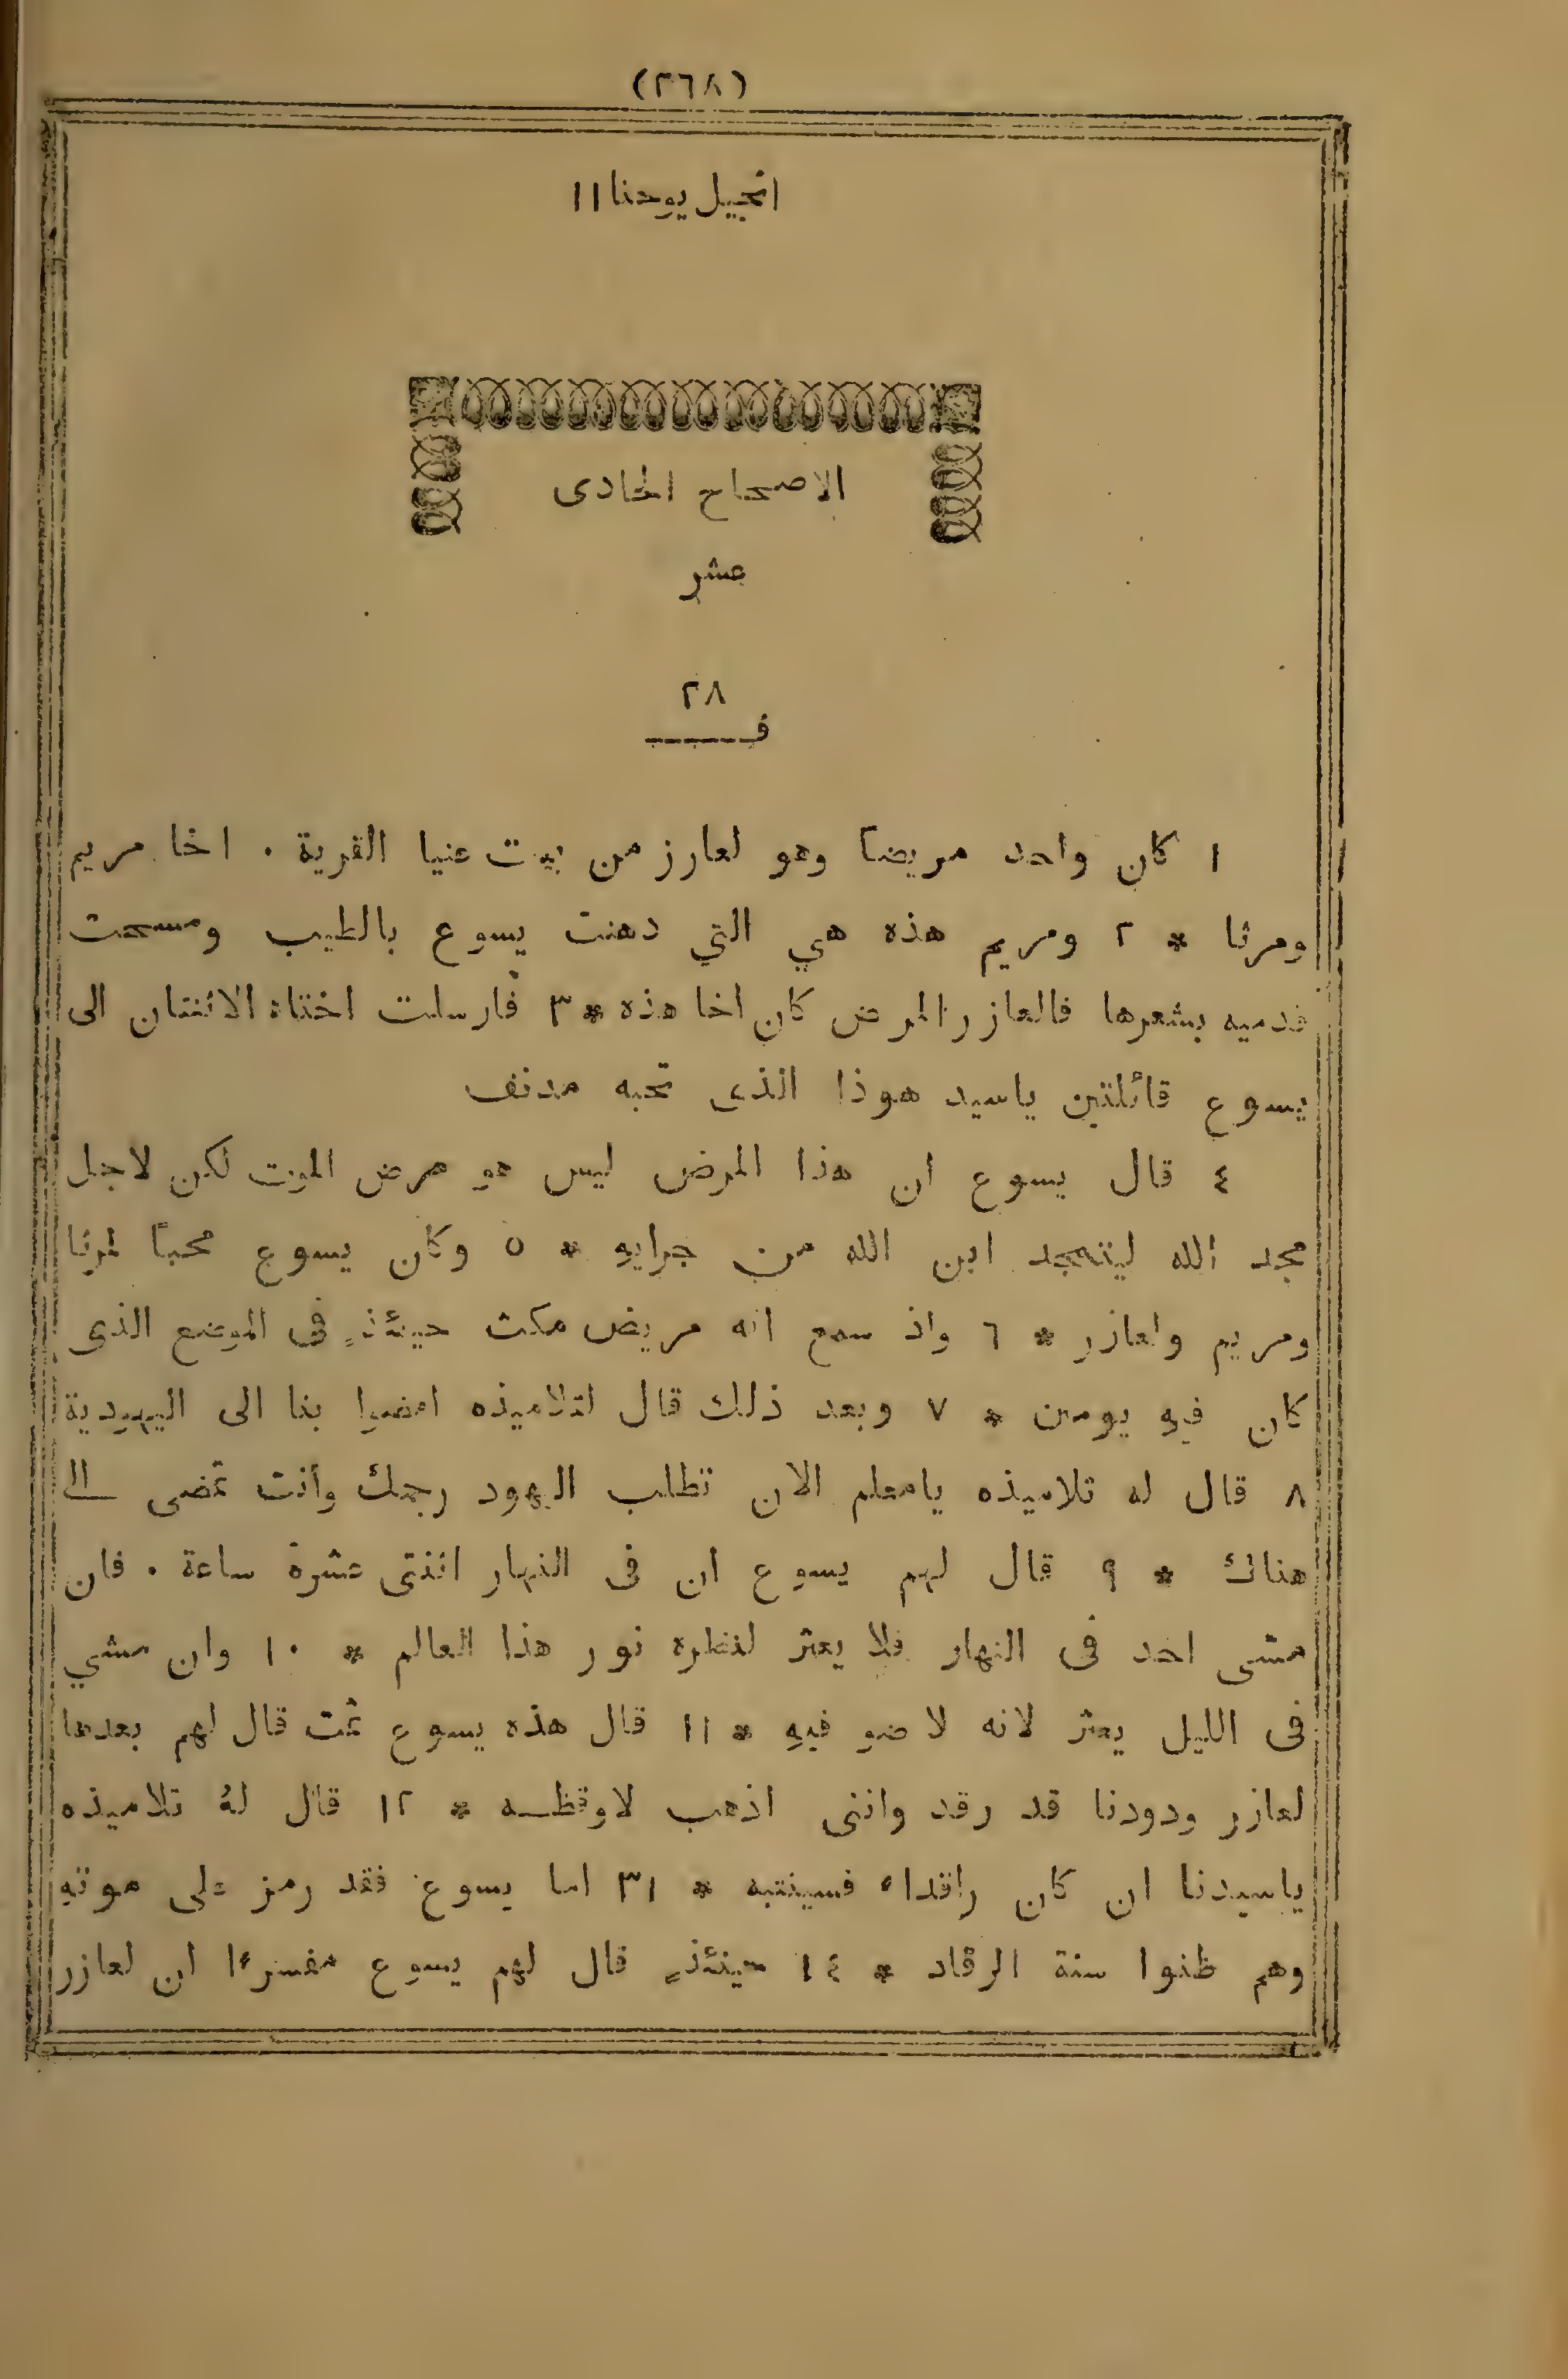 (٣٦٨)
انجيل يوحنا ١١
الاصحاح الحادى
عشر
٢٨
ف
١ كان واحد مريضا وهو لعارز من بيت عنيا القرية . اخا مريم
ومرثا * ٢ ومريم هذه هي التي دهنت يسوع بالطيب ومسحت
قدميه بشعرها فالعازر المرض كان اخا هذه * ٣ فارسلت اختاه الاثنتان الى
يسوع قائلتين ياسيد هوذا الذى تحبه مدنف
٤ قال يسوع ان هذا المرض ليس هو مرض الموت لكن لاجل
مجد الله ليتمجد ابن الله من جرايه * ٥ وكان يسوع محبا لمرثا
ومريم ولعازر * ٦ واذ سمع انه مريض مكث حينئذٍ فى الموضع الذى
كان فيه يومين * ٧ وبعد ذلك قال لتلاميذه امضوا بنا الى اليهودية
٨ قال له تلاميذه يامعلم الان تطلب اليهود رجمك وأنت تمضى الـ
هناك * ٩ قال لهم يسوع ان فى النهار اثنتى عشرة ساعة . فان
مشى احد فى النهار فلا يعثر لنظره نور هذا العالم * ١٠ وان مشي
فى الليل يعثر لانه لا ضو فيه * ١١ قال هذه يسوع ثمت قال لهم بعدها
لعازر ودودنا قد رقد واننى اذهب لاوقظـه * ١٢ قال لهُ تلاميذه
ياسيدنا ان كان راقداً فسينتبه * ٣١ اما يسوع فقد رمز على موته
وهم ظنوا سنة الرقاد * ١٤ حينئذٍ قال لهم يسوع مفسرًا ان لعازر